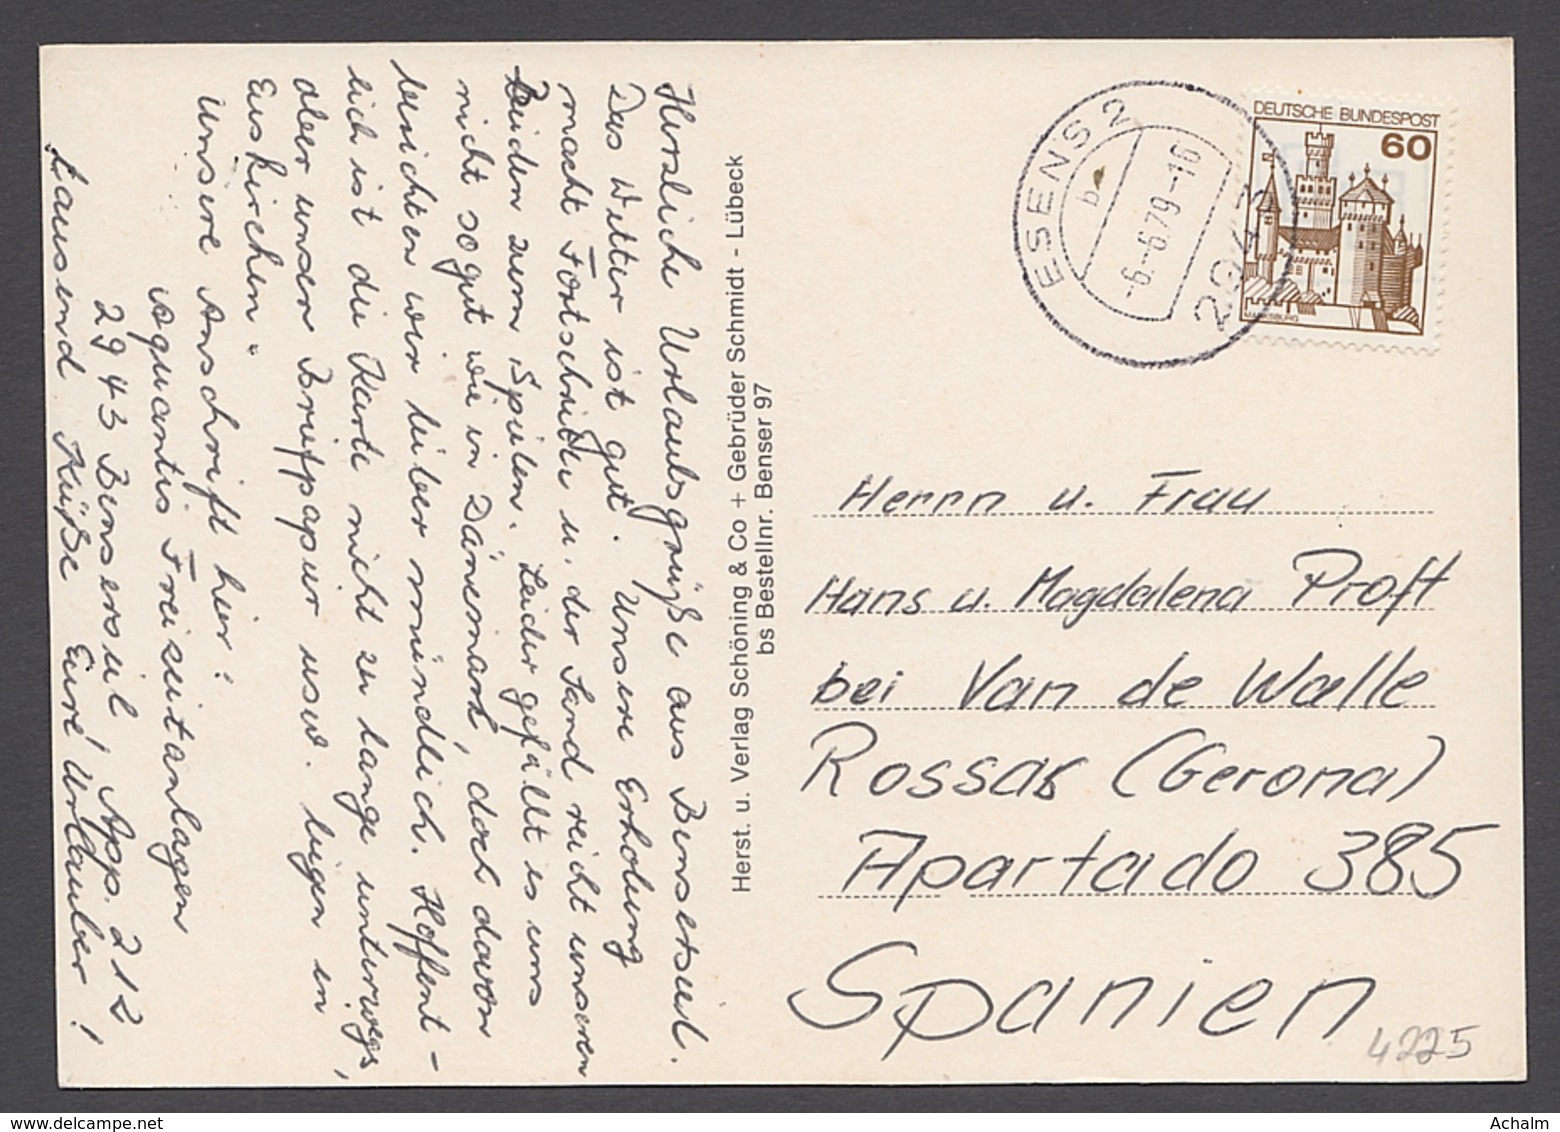 Herzliche Urlaubsgrüße aus Bensersiel.
Das Wetter ist gut. Unsere Erholung
macht Fortschritte u. der Sand reicht unseren
Beiden zum Spielen. Leider gefällt es uns
nicht so gut wie in Dänemark, doch davon
berichten wir lieber mündlich. Hoffent-
lich ist die Karte nicht zu lange unterwegs,
aber unser Briefpapier usw. liegen in
Euskirchen"
Unsere Anschrift hier:
Aquantis Freizeitanlagen
2943 Bensersiel, App. 212
Tausend Küße Eure Urlauber!
Herst. u. Verlag Schöning & Co + Gebrüder Schmidt - Lübeck
bs Bestellnr. Benser 97
ESENS 2
b
-6.-6.79-16
2943
DEUTSCHE BUNDESPOST
60
MARKSBURG
Herrn u. Frau
Hans u. Magdalena Proft
bei Van de Walle
Rossas (Gerona)
Apartado 385
Spanien
4225
Achalm